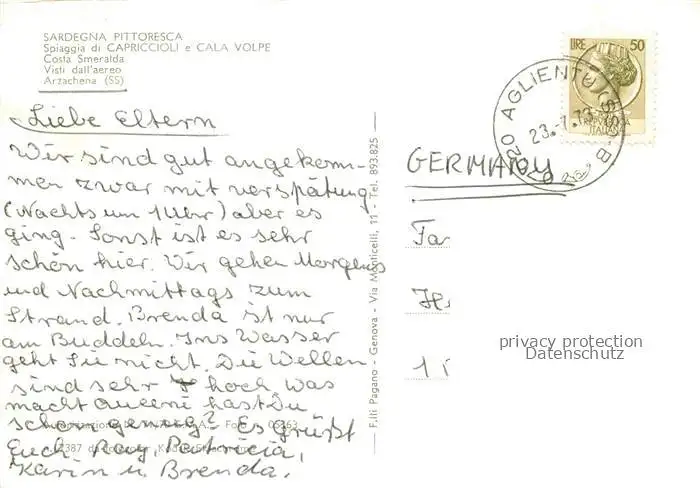 SARDEGNA PITTORESCA
Spiaggia di CAPRICCIOLI e CALA VOLPE
Costa Smeralda
Visti dall'aereo
Arzachena (SS)
Liebe Eltern
Wir sind gut angekom-
men zwar mit verspätung
(Nachts um 1 Uhr) aber es
ging. Sonst ist es sehr
schön hier. Wir gehen Morgens
und Nachmittags zum
Strand. Brenda ist nur
am Buddeln. Ins Wasser
geht Sie nicht. Die Wellen
sind sehr hoch. Was
macht hast Du
schon genug? Es grüßt
Euch. Ray, Patricia,
Karin u. Brenda.
F.lli Pagano - Genova - Via Monticelli, 11 - Tel. 893.825
LIRE 50
ITALIANA
AGLIENTU (SS)
23.-7.73
GERMANY
privacy protection
Datenschutz